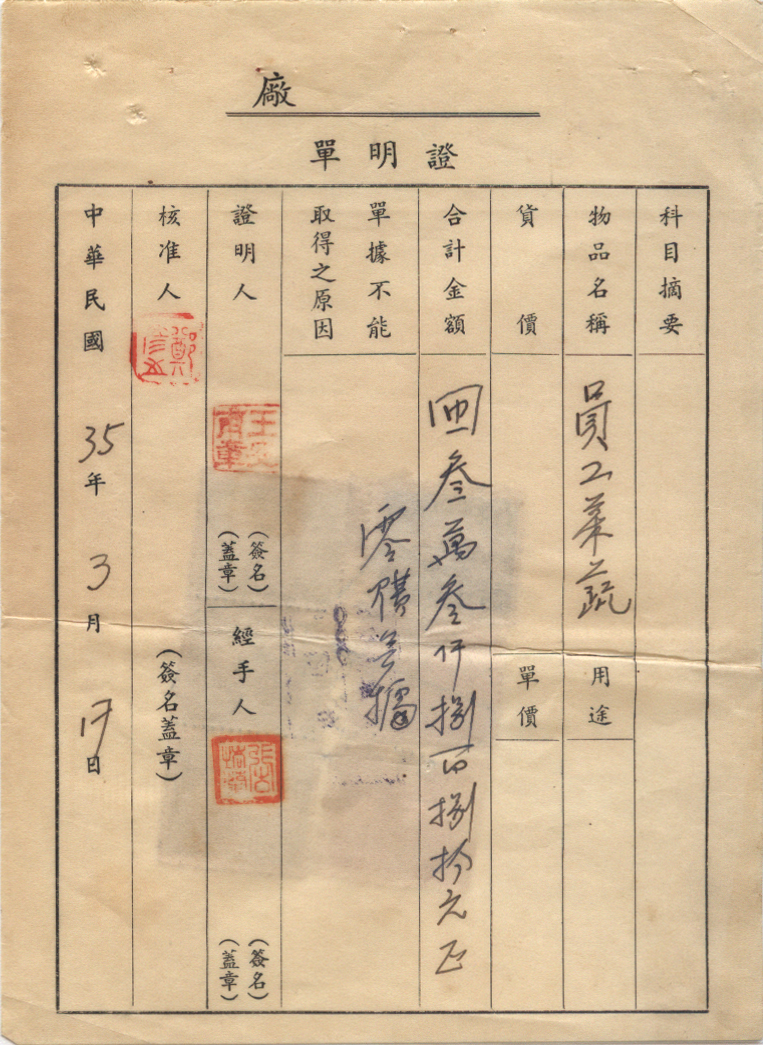 廠
證明單
科目摘要
物品名稱
員工菜蔬
用途
貨價
單價
合計金額
叁萬叁仟捌百捌拾元正
單據不能
取得之原因
零購無據
證明人
(簽名
蓋章)
經手人
(簽名
蓋章)
核准人
(簽名蓋章)
中華民國35年3月17日